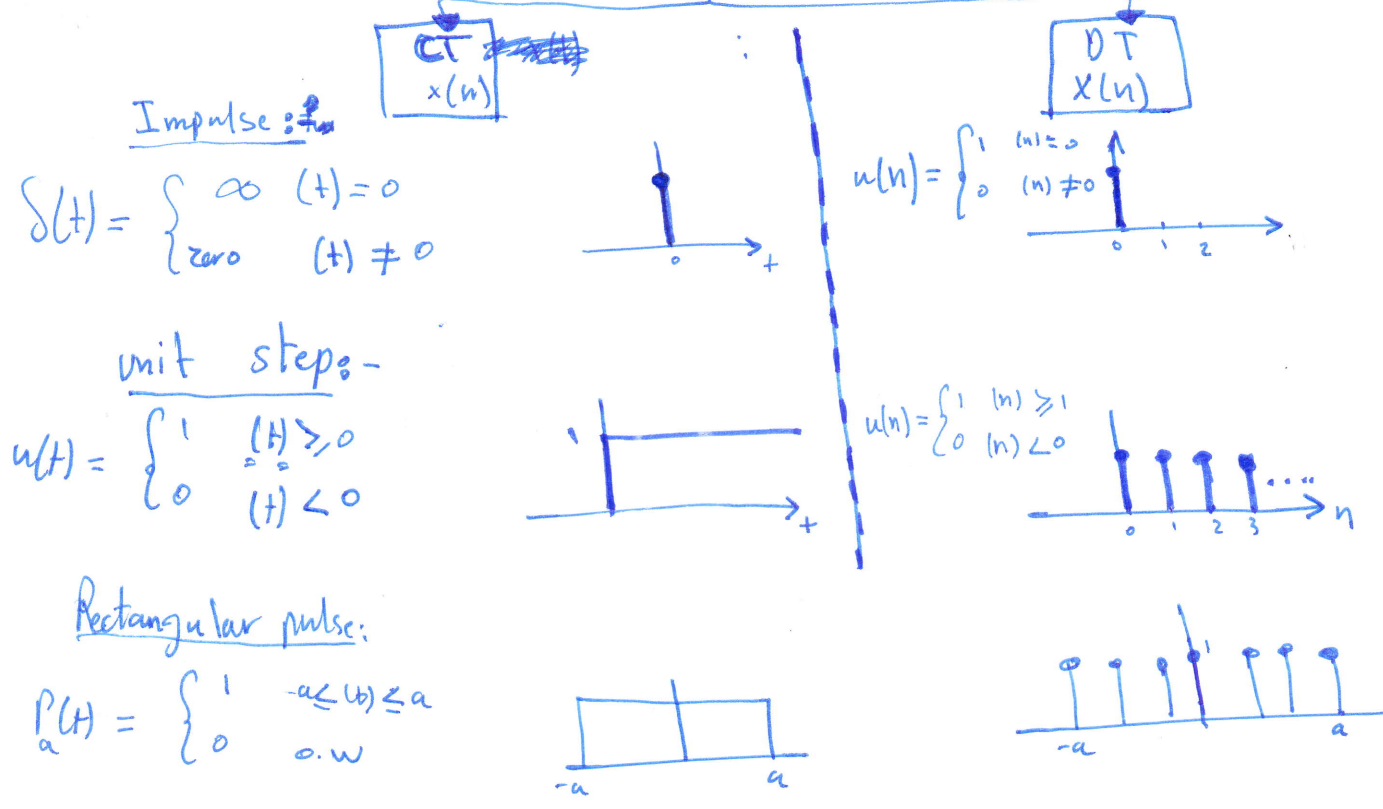 CT
x(n)
DT
X(n)
Impulse :
δ(t) = { ∞ (t) = 0
zero (t) ≠ 0
0 t
u(n) = { 1 (n) = 0
0 (n) ≠ 0
0 1 2
unit step:-
u(t) = { 1 (t) ≥ 0
0 (t) < 0
1
t
u(n) = { 1 (n) ≥ 1
0 (n) < 0
....
0 1 2 3 n
Rectangular pulse:
P_a(t) = { 1 -a ≤ (t) ≤ a
0 o.w
-a a
1
-a a